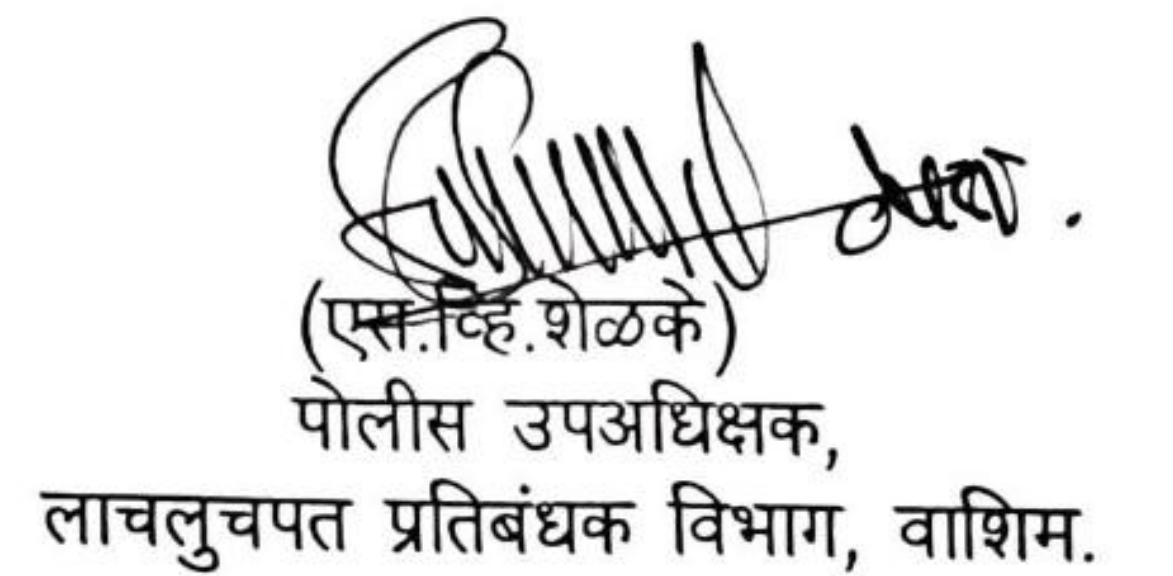 (एस.व्हि.शेळके)
पोलीस उपअधिक्षक,
लाचलुचपत प्रतिबंधक विभाग, वाशिम.